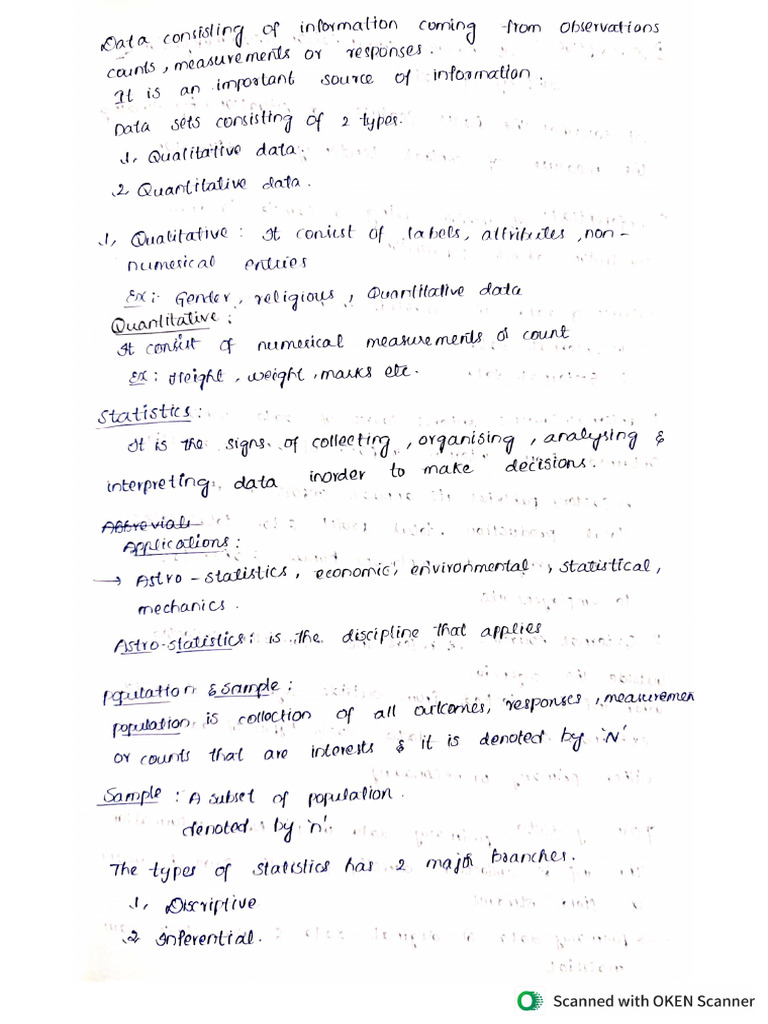 Data consisting of information coming from observations
counts, measurements or responses.
It is an important source of information.
Data sets consisting of 2 types.
1, Qualitative data.
2 Quantitative data.
1, Qualitative: It consist of labels, attributes, non-
numerical entries
Ex:- Gender, religious, Quantitative data
Quantitative:
It consist of numerical measurements or count
Ex: Height, weight, marks etc.
Statistics:
It is the signs of collecting, organising, analysing &
interpreting data inorder to make decisions.
Abbreviati
Applications:
→ Astro-statistics, economic, environmental, statistical,
mechanics.
Astro-statistics: is the discipline that applies
Population & Sample:
population is collection of all outcomes, responses, measuremen
or counts that are interests & it is denoted by 'N'.
Sample: A subset of population.
denoted by 'n'.
The types of statistics has 2 major branches.
1, Discriptive
2 Inferential.
Scanned with OKEN Scanner